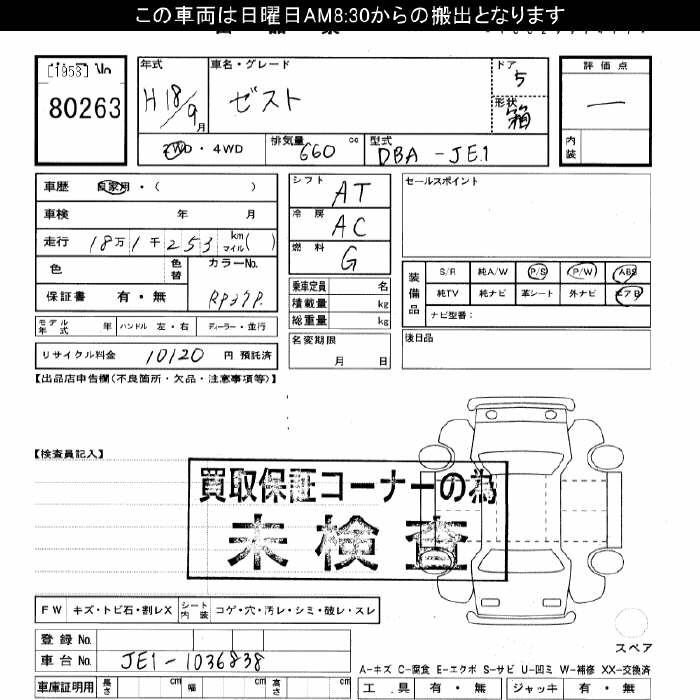 この車両は日曜日AM8:30からの搬出となります
[1953] No
80263
年式 H18/9月
車名・グレード ゼスト
ドア 5
形状 箱
評価点 —
内装
2WD・4WD
排気量 660 cc
型式 DBA-JE1
車歴 自家用・( )
車検 年 月
走行 18万1千253 km マイル( )
色 色替
カラーNo.
保証書 有・無
モデル年式 年 ハンドル 左・右 ディーラー・並行
リサイクル料金 10120 円 預託済
シフト AT
冷房 AC
燃料 G
乗車定員 名
積載量 kg
総重量 kg
名変期限
月 日
セールスポイント
装備品
S/R 純A/W P/S P/W ABS
純TV 純ナビ 革シート 外ナビ エアB
ナビ型番:
後日品
【出品店申告欄(不良箇所・欠品・注意事項等)】
【検査員記入】
買取保証コーナーの為
未検査
FW キズ・トビ石・割レX シート内装 コゲ・穴・汚レ・シミ・破レ・スレ
登録No.
車台No. JE1-1036838
車庫証明用 長さ cm 幅 cm 高さ cm
スペア
A-キズ C-腐食 E-エクボ S-サビ U-凹ミ W-補修 XX-交換済
工具 有・無 ジャッキ 有・無